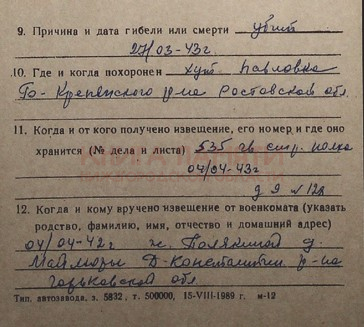 9. Причина и дата гибели или смерти убит
27/03-43г.
10. Где и когда похоронен хут Павловка
Го- Крепенского р-на Ростовской обл.
11. Когда и от кого получено извещение, его номер и где оно
хранится (№ дела и листа) 535 гв стр. полка
04/04-43г
д 9 л 128
12. Когда и кому вручено извещение от военкомата (указать
родство, фамилию, имя, отчество и домашний адрес)
04/04-42г ж. Полякиной д.
Майморы Д-Константин р-на
Горьковской обл
Тип. автозавода, з. 5832, т. 500000, 15-VIII-1989 г. м-12